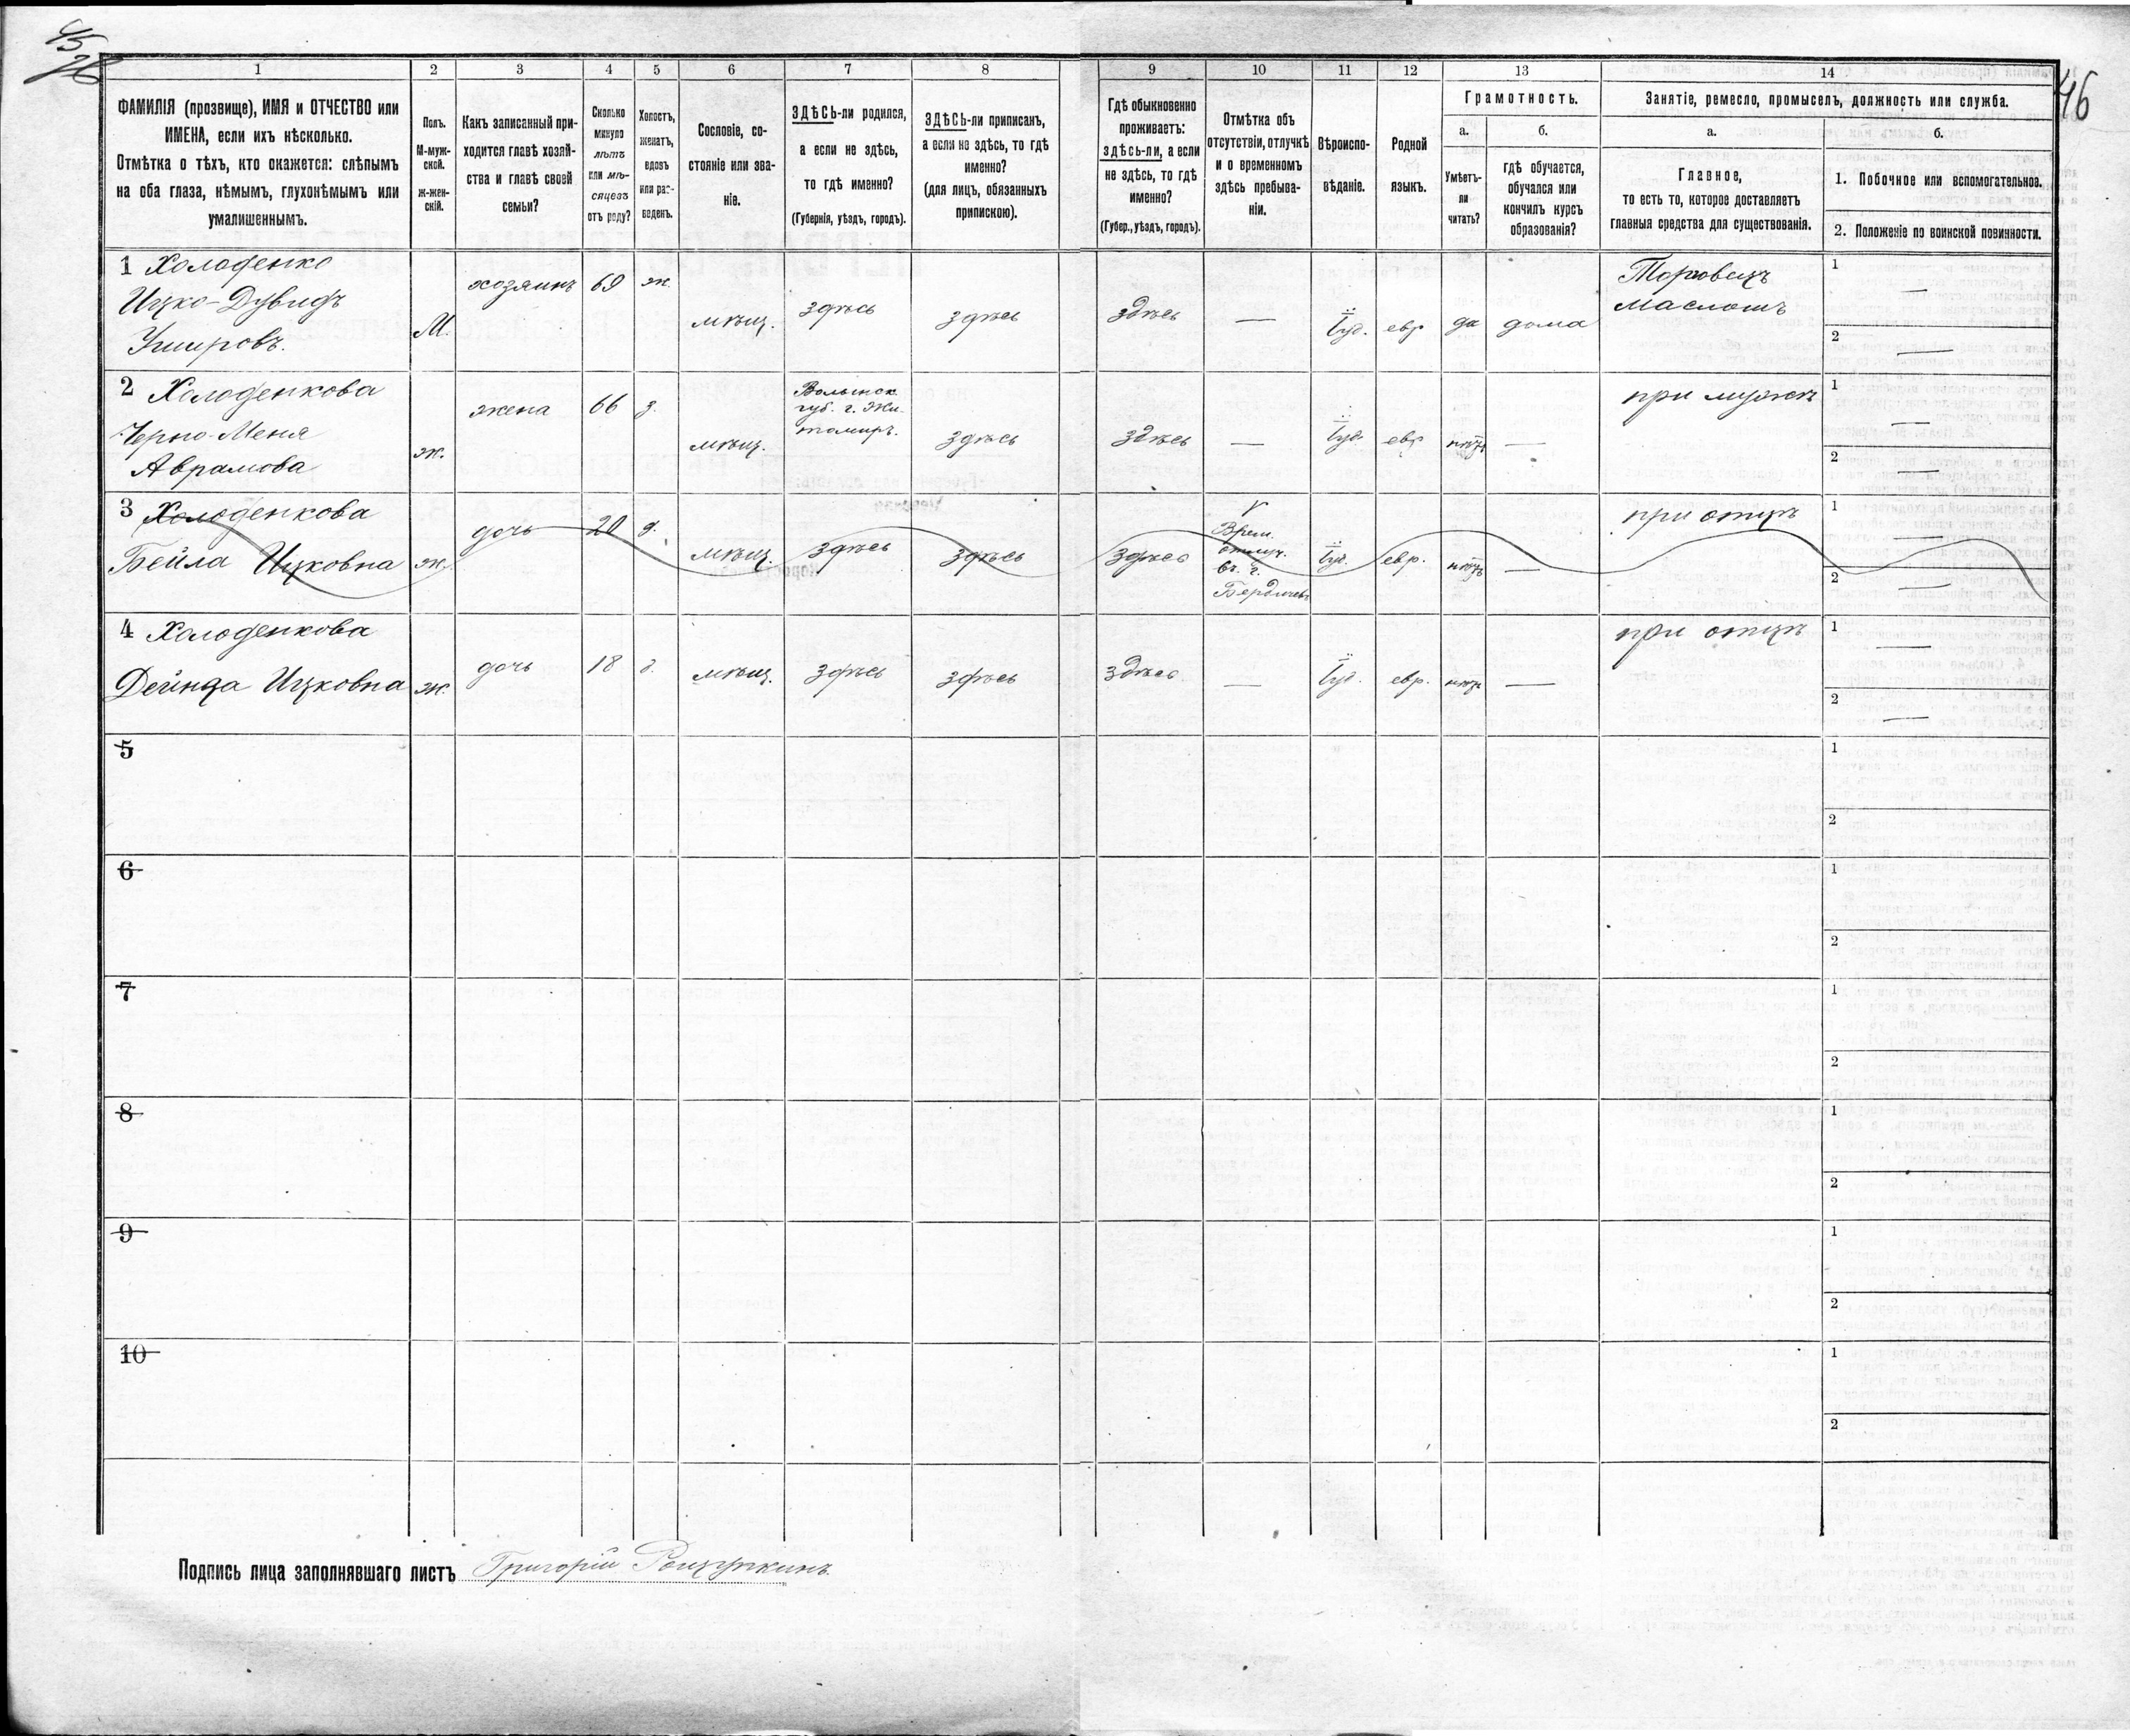 45
46
1 2 3 4 5 6 7 8 9 10 11 12 13 14
ФАМИЛІЯ (прозвище), ИМЯ и ОТЧЕСТВО или
ИМЕНА, если ихъ нѣсколько.
Отмѣтка о тѣхъ, кто окажется: слѣпымъ
на оба глаза, нѣмымъ, глухонѣмымъ или
умалишеннымъ.
Полъ.
М-муж-
ской.
Ж-жен-
скій.
Какъ записанный при-
ходится главѣ хозяй-
ства и главѣ своей
семьи?
Сколько
минуло
лѣтъ
или мѣ-
сяцевъ
отъ роду?
Холостъ,
женатъ,
вдовъ
или раз-
веденъ.
Сословіе, со-
стояніе или зва-
ніе.
ЗДѢСЬ-ли родился,
а если не здѣсь,
то гдѣ именно?
(Губернія, уѣздъ, городъ).
ЗДѢСЬ-ли приписанъ,
а если не здѣсь, то гдѣ
именно?
(для лицъ, обязанныхъ
припискою).
Гдѣ обыкновенно
проживаетъ:
здѣсь-ли, а если
не здѣсь, то гдѣ
именно?
(Губер., уѣздъ, городъ).
Отмѣтка объ
отсутствіи, отлучкѣ
и о временномъ
здѣсь пребыва-
ніи.
Вѣроиспо-
вѣданіе.
Родной
языкъ.
Грамотность.
а.
Умѣетъ-
ли
читать?
б.
гдѣ обучается,
обучался или
кончилъ курсъ
образованія?
Занятіе, ремесло, промыселъ, должность или служба.
а.
Главное,
то есть то, которое доставляетъ
главныя средства для существованія.
б.
1. Побочное или вспомогательное.
2. Положеніе по воинской повинности.
1 Холоденко
Ицко-Дувидъ
Умировъ.
М.
хозяинъ
69
ж.
мѣщ.
здѣсь
здѣсь
здѣсь
—
Іуд.
евр
да
дома
Торговецъ
масломъ
1 —
2 —
2 Холоденкова
Черно-Меня
Аврамова
ж.
жена
66
з.
мѣщ.
Волынск.
губ. г. Жи-
томиръ.
здѣсь
здѣсь
—
Іуд
евр
нѣтъ
—
при мужѣ
1 —
2 —
3 Холоденкова
Бейла Ицковна
ж.
дочь
20
д.
мѣщ.
здѣсь
здѣсь
здѣсь
Врем.
отлуч.
въ г.
Бердичевъ
Іуд.
евр.
нѣтъ
—
при отцѣ
1 —
2 —
4 Холоденкова
Дейнда Ицковна
ж.
дочь
18
д.
мѣщ.
здѣсь
здѣсь
здѣсь
—
Іуд.
евр.
нѣтъ
—
при отцѣ
1 —
2 —
5
1
2
6
1
2
7
1
2
8
1
2
9
1
2
10
1
2
Подпись лица заполнявшаго листъ Григорій